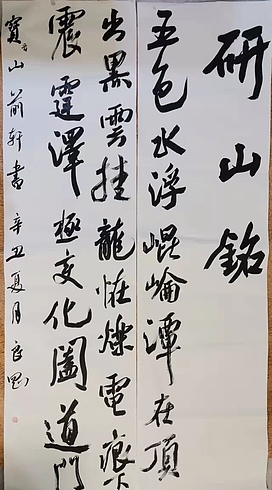 研山銘
五色水浮崐崘潭在頂
出黑雲挂龍怪爍電痕下
震霆澤極变化闔道門
寶晉山前軒書 辛丑夏月良